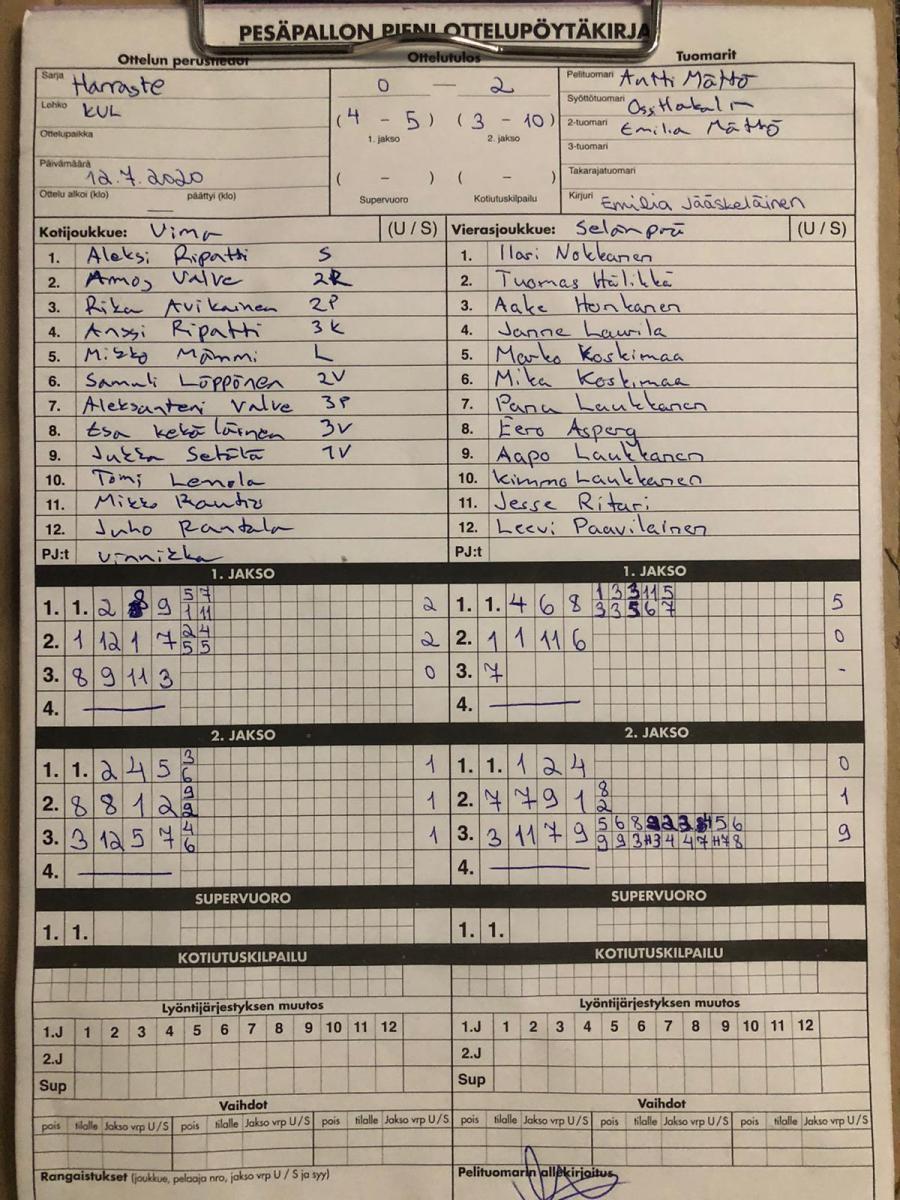 PESÄPALLON PIENI OTTELUPÖYTÄKIRJA
Ottelun perustiedot
Sarja Harraste
Lohko KUL
Ottelupaikka
Päivämäärä 12.7.2020
Ottelu alkoi (klo) päättyi (klo)
Ottelutulos
0 — 2
(4 - 5) (3 - 10)
1. jakso 2. jakso
( - ) ( - )
Supervuoro Kotiutuskilpailu
Tuomarit
Pelituomari Antti Mättö
Syöttötuomari
2-tuomari Emilia Mättö
3-tuomari
Takarajatuomari
Kirjuri Emilia Jääskeläinen
Kotijoukkue: Vima (U / S)
1. Aleksi Ripatti S
2. Amos Valve 2K
3. Riku Avikainen 2P
4. Anssi Ripatti 3K
5. Mikko Mämmi L
6. Samuli Löppönen 2V
7. Aleksanteri Valve 3P
8. Esa Kekäläinen 3V
9. Jukka Setälä 1V
10. Tomi Lenola
11. Mikko Rautio
12. Juho Rantala
PJ:t Vinnikka
Vierasjoukkue: Selänpää (U / S)
1. Ilari Nokkanen
2. Tuomas Hälikkä
3. Aake Honkanen
4. Janne Laurila
5. Marko Koskimaa
6. Mika Koskimaa
7. Panu Laukkanen
8. Eero Asperg
9. Aapo Laukkanen
10. Kimmo Laukkanen
11. Jesse Ritari
12. Leevi Paavilainen
PJ:t
1. JAKSO
1. 1. 2 8 9 5 7 2
1 11
2. 1 12 1 7 2 4 2
5 5
3. 8 9 11 3 0
4.
1. JAKSO
1. 1. 4 6 8 1 3 3 11 5 5
3 3 5 6 7
2. 1 1 11 6 0
3. 7 -
4.
2. JAKSO
1. 1. 2 4 5 3 1
6
2. 8 8 1 2 9 1
2
3. 3 12 5 7 4 1
6
4.
2. JAKSO
1. 1. 1 2 4 0
2. 7 7 9 1 8 1
2
3. 3 11 7 9 5 6 8 5 6 9
9 9 3 4 4 7 8
4.
SUPERVUORO
1. 1.
SUPERVUORO
1. 1.
KOTIUTUSKILPAILU
KOTIUTUSKILPAILU
Lyöntijärjestyksen muutos
1.J 1 2 3 4 5 6 7 8 9 10 11 12
2.J
Sup
Lyöntijärjestyksen muutos
1.J 1 2 3 4 5 6 7 8 9 10 11 12
2.J
Sup
Vaihdot
pois tilalle Jakso vrp U / S pois tilalle Jakso vrp U / S pois tilalle Jakso vrp U / S
Vaihdot
pois tilalle Jakso vrp U / S pois tilalle Jakso vrp U / S pois tilalle Jakso vrp U / S
Rangaistukset (joukkue, pelaaja nro, jakso vrp U / S ja syy)
Pelituomarin allekirjoitus